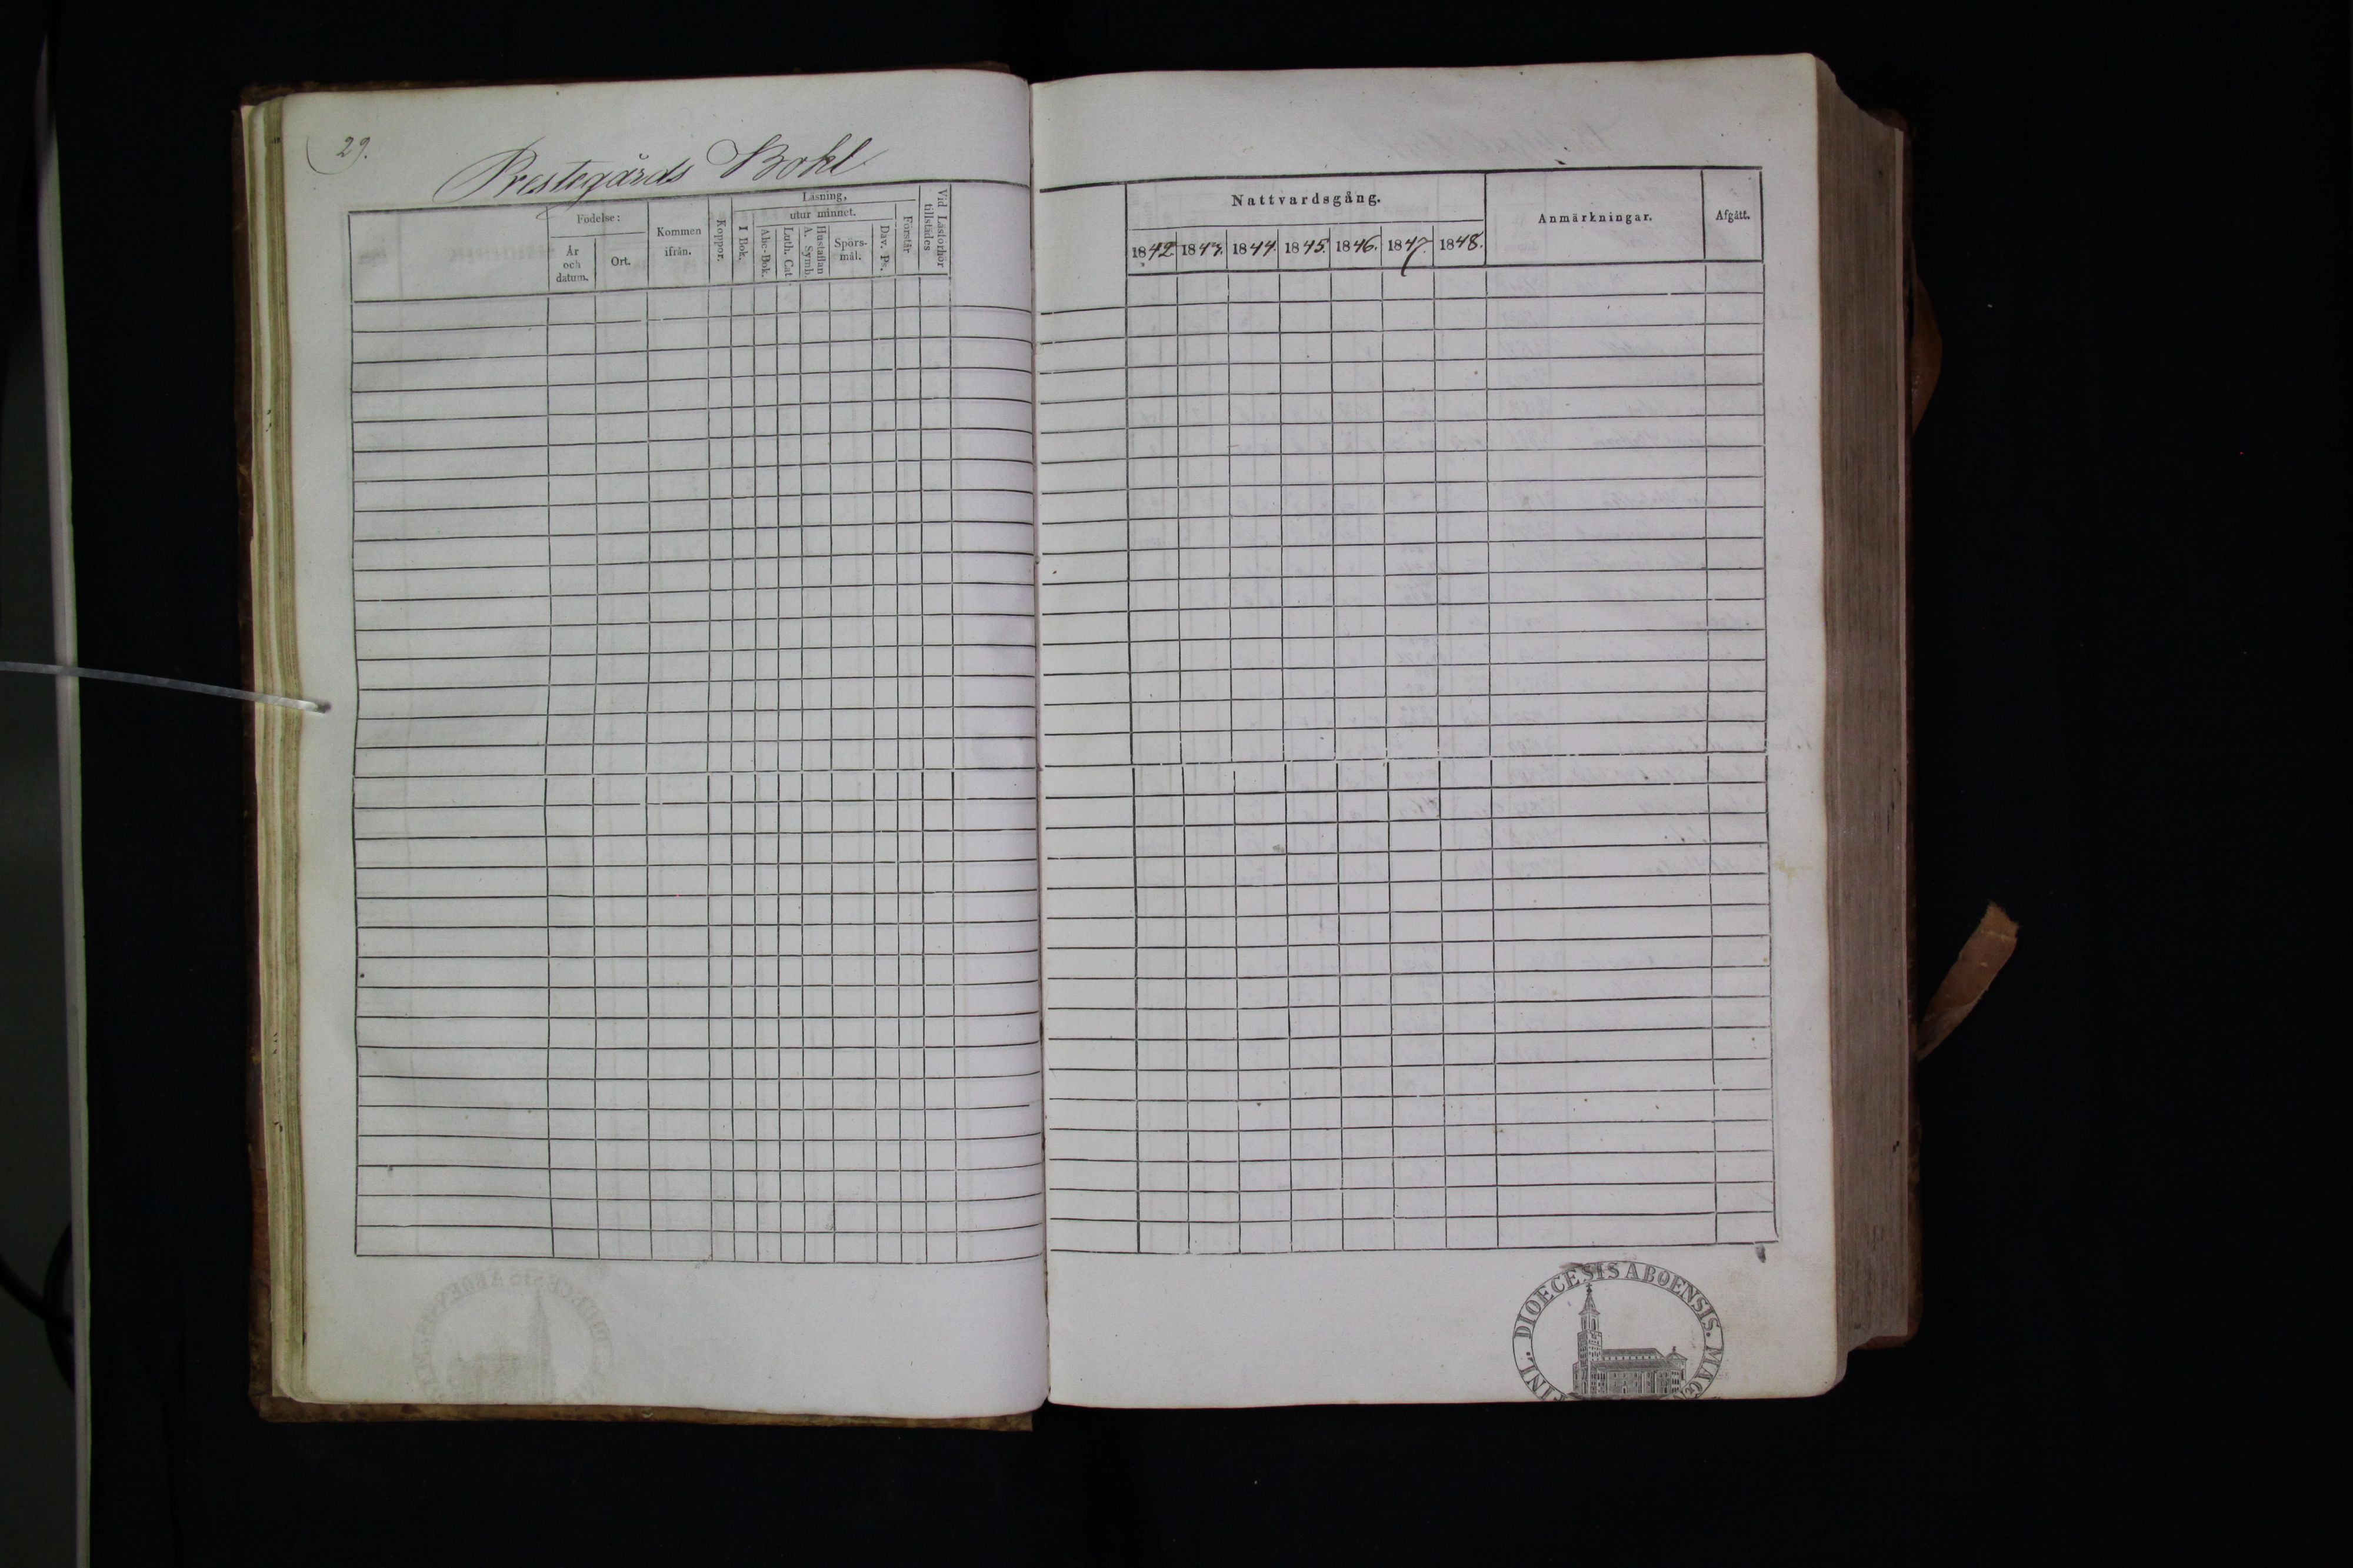 29.
Prestegårds Bohl
Födelse:
År
och
datum.
Ort.
Kommen
ifrån.
Koppor.
Läsning,
utur minnet.
I Bok.
Abc-Bok.
Luth. Cat.
Hustaflan
A. Symb.
Spörs-
mål.
Dav. Ps.
Förstår
Vid Läsförhör
tillstädes
Nattvardsgång.
1842. 1843. 1844. 1845. 1846. 1847. 1848.
Anmärkningar.
Afgått.
FINL. DIOECESIS ABOENSIS. MAG